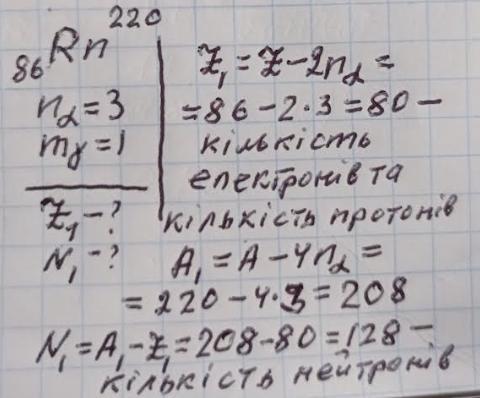 ₈₆Rn²²⁰
n₂ = 3
mγ = 1
Z₁ - ?
N₁ - ?
Z₁ = Z - 2n₂ =
= 86 - 2·3 = 80 -
кількість
електронів та
кількість протонів
A₁ = A - 4n₂ =
= 220 - 4·3 = 208
N₁ = A₁ - Z₁ = 208 - 80 = 128 -
кількість нейтронів